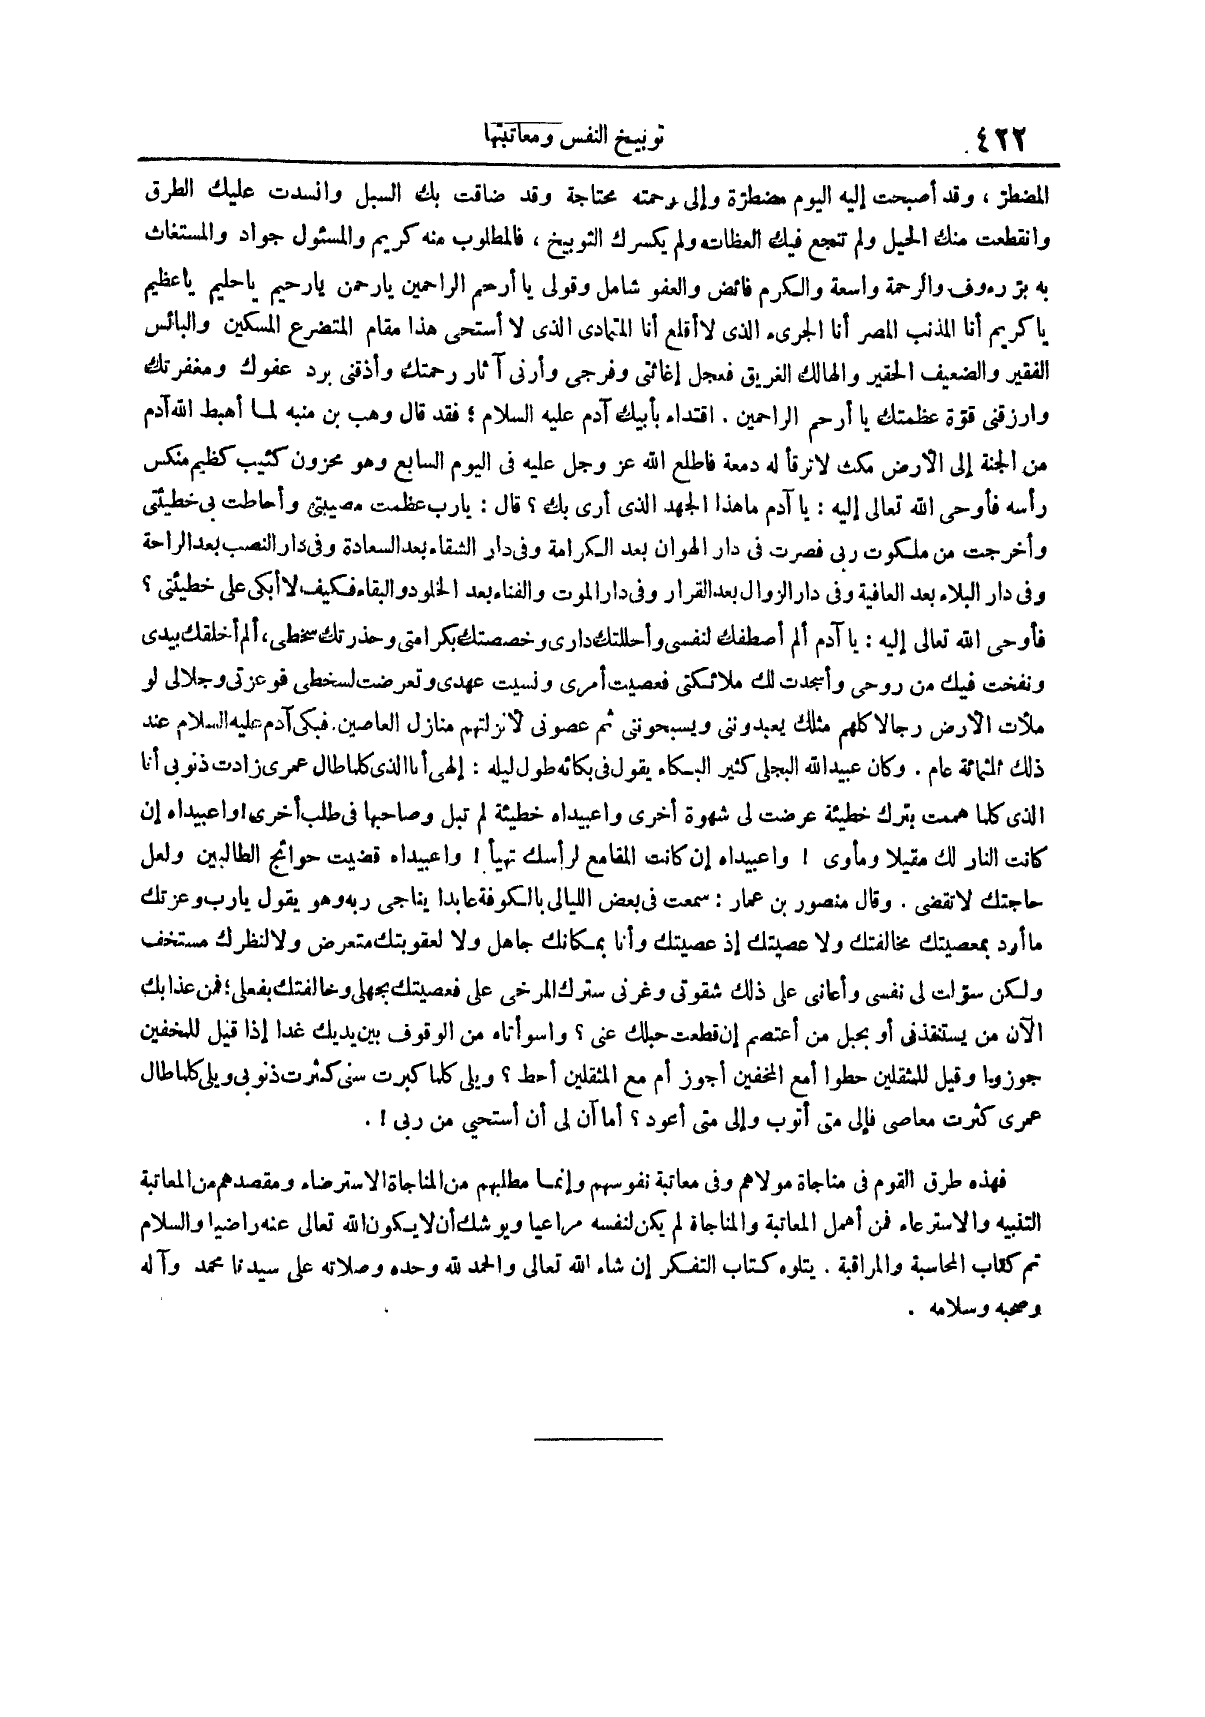 ٤٢٢
توبيخ النفس ومعاتبتها
المضطرّ ، وقد أصبحت إليه اليوم مضطرّة وإلى رحمته محتاجة وقد ضاقت بك السبل وانسدت عليك الطرق
وانقطعت منك الحيل ولم تنجع فيك العظات ولم يكسرك التوبيخ ، فالمطلوب منه كريم والمسئول جواد والمستغاث
به برّ رءوف والرحمة واسعة والكرم فائض والعفو شامل وقولى يا أرحم الراحمين يارحمن يارحيم ياحليم ياعظيم
يا كريم أنا المذنب المصر أنا الجرىء الذى لا أقلع أنا المتمادى الذى لا أستحى هذا مقام المتضرع المسكين والبائس
الفقير والضعيف الحقير والهالك الغريق فعجل إغاثتى وفرجى وأرنى آثار رحمتك وأذقنى برد عفوك ومغفرتك
وارزقنى قوّة عظمتك يا أرحم الراحمين . اقتداء بأبيك آدم عليه السلام ؛ فقد قال وهب بن منبه لما أهبط الله آدم
من الجنة إلى الأرض مكث لاترقأ له دمعة فاطلع الله عز وجل عليه فى اليوم السابع وهو محزون كئيب كظيم منكس
رأسه فأوحى الله تعالى إليه : يا آدم ماهذا الجهد الذى أرى بك ؟ قال : يارب عظمت مصيبتى وأحاطت بى خطيئتى
وأخرجت من ملكوت ربى فصرت فى دار الهوان بعد الكرامة وفى دار الشقاء بعد السعادة وفى دار النصب بعد الراحة
وفى دار البلاء بعد العافية وفى دار الزوال بعد القرار وفى دار الموت والفناء بعد الخلود والبقاء فكيف لا أبكى على خطيئتى ؟
فأوحى الله تعالى إليه : يا آدم ألم أصطفك لنفسى وأحللتك دارى وخصصتك بكرامتى وحذرتك سخطى ، ألم أخلقك بيدى
ونفخت فيك من روحى وأسجدت لك ملائكتى فعصيت أمرى ونسيت عهدى وتعرضت لسخطى فوعزتى وجلالى لو
ملأت الأرض رجالا كلهم مثلك يعبدوننى ويسبحوننى ثم عصونى لأنزلتهم منازل العاصين . فبكى آدم عليه السلام عند
ذلك ثلثمائة عام . وكان عبيد الله البجلى كثير البكاء يقول فى بكائه طول ليله : إلهى أنا الذى كلما طال عمرى زادت ذنوبى أنا
الذى كلما هممت بترك خطيئة عرضت لى شهوة أخرى واعبيداه خطيئة لم تبل وصاحبها فى طلب أخرى ! واعبيداه إن
كانت النار لك مقيلا ومأوى ! واعبيداه إن كانت المقامع لرأسك تهيأ ! واعبيداه قضيت حوائج الطالبين ولعل
حاجتك لاتقضى . وقال منصور بن عمار : سمعت فى بعض الليالى بالكوفة عابدا يناجى ربه وهو يقول يارب وعزتك
ما أرد بمعصيتك مخالفتك ولا عصيتك إذ عصيتك وأنا بمكانك جاهل ولا لعقوبتك متعرض ولا لنظرك مستخف
ولكن سوّلت لى نفسى وأعانى على ذلك شقوتى وغرنى سترك المرخى على فعصيتك بجهلى وخالفتك بفعلى ؛ فمن عذابك
الآن من يستنقذنى أو بحبل من أعتصم إن قطعت حبلك عنى ؟ واسوأتاه من الوقوف بين يديك غدا إذا قيل للمخفين
جوزوا وقيل للمثقلين حطوا أمع المخفين أجوز أم مع المثقلين أحط ؟ ويلى كلما كبرت سنى كثرت ذنوبى ويلى كلما طال
عمرى كثرت معاصى فإلى متى أتوب وإلى متى أعود ؟ أما آن لى أن أستحي من ربى ! .
فهذه طرق القوم فى مناجاة مولاهم وفى معاتبة نفوسهم وإنما مطلبهم من المناجاة الاسترضاء ومقصدهم من المعاتبة
التنبيه والاسترعاء فمن أهمل المعاتبة والمناجاة لم يكن لنفسه مراعيا ويوشك أن لا يكون الله تعالى عنه راضيا والسلام
تم كتاب المحاسبة والمراقبة . يتلوه كتاب التفكر إن شاء الله تعالى والحمد لله وحده وصلاته على سيدنا محمد وآله
وصحبه وسلامه .